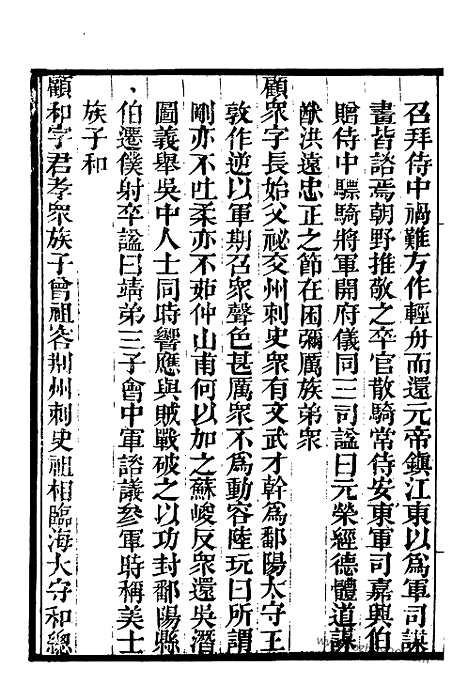 召拜侍中禍難方作輕舟而還元帝鎮江東以爲軍司謀
畫皆諮焉朝野推敬之卒官散騎常侍安東軍司嘉興伯
贈侍中驃騎將軍開府儀同三司諡曰元榮經德體道謀
猷洪遠忠正之節在困彌厲族弟衆
顧衆字長始父祕交州刺史衆有文武才幹爲鄱陽太守王
敦作逆以軍期召衆聲色甚厲衆不爲動容陸玩曰所謂
剛亦不吐柔亦不茹仲山甫何以加之蘇峻反衆還吳潛
圖義舉吳中人士同時響應與賊戰破之以功封鄱陽縣
伯遷僕射卒諡曰靖弟三子會中軍諮議參軍時稱美士
族子和
顧和字君孝衆族子曾祖容荆州刺史祖相臨海大守和總